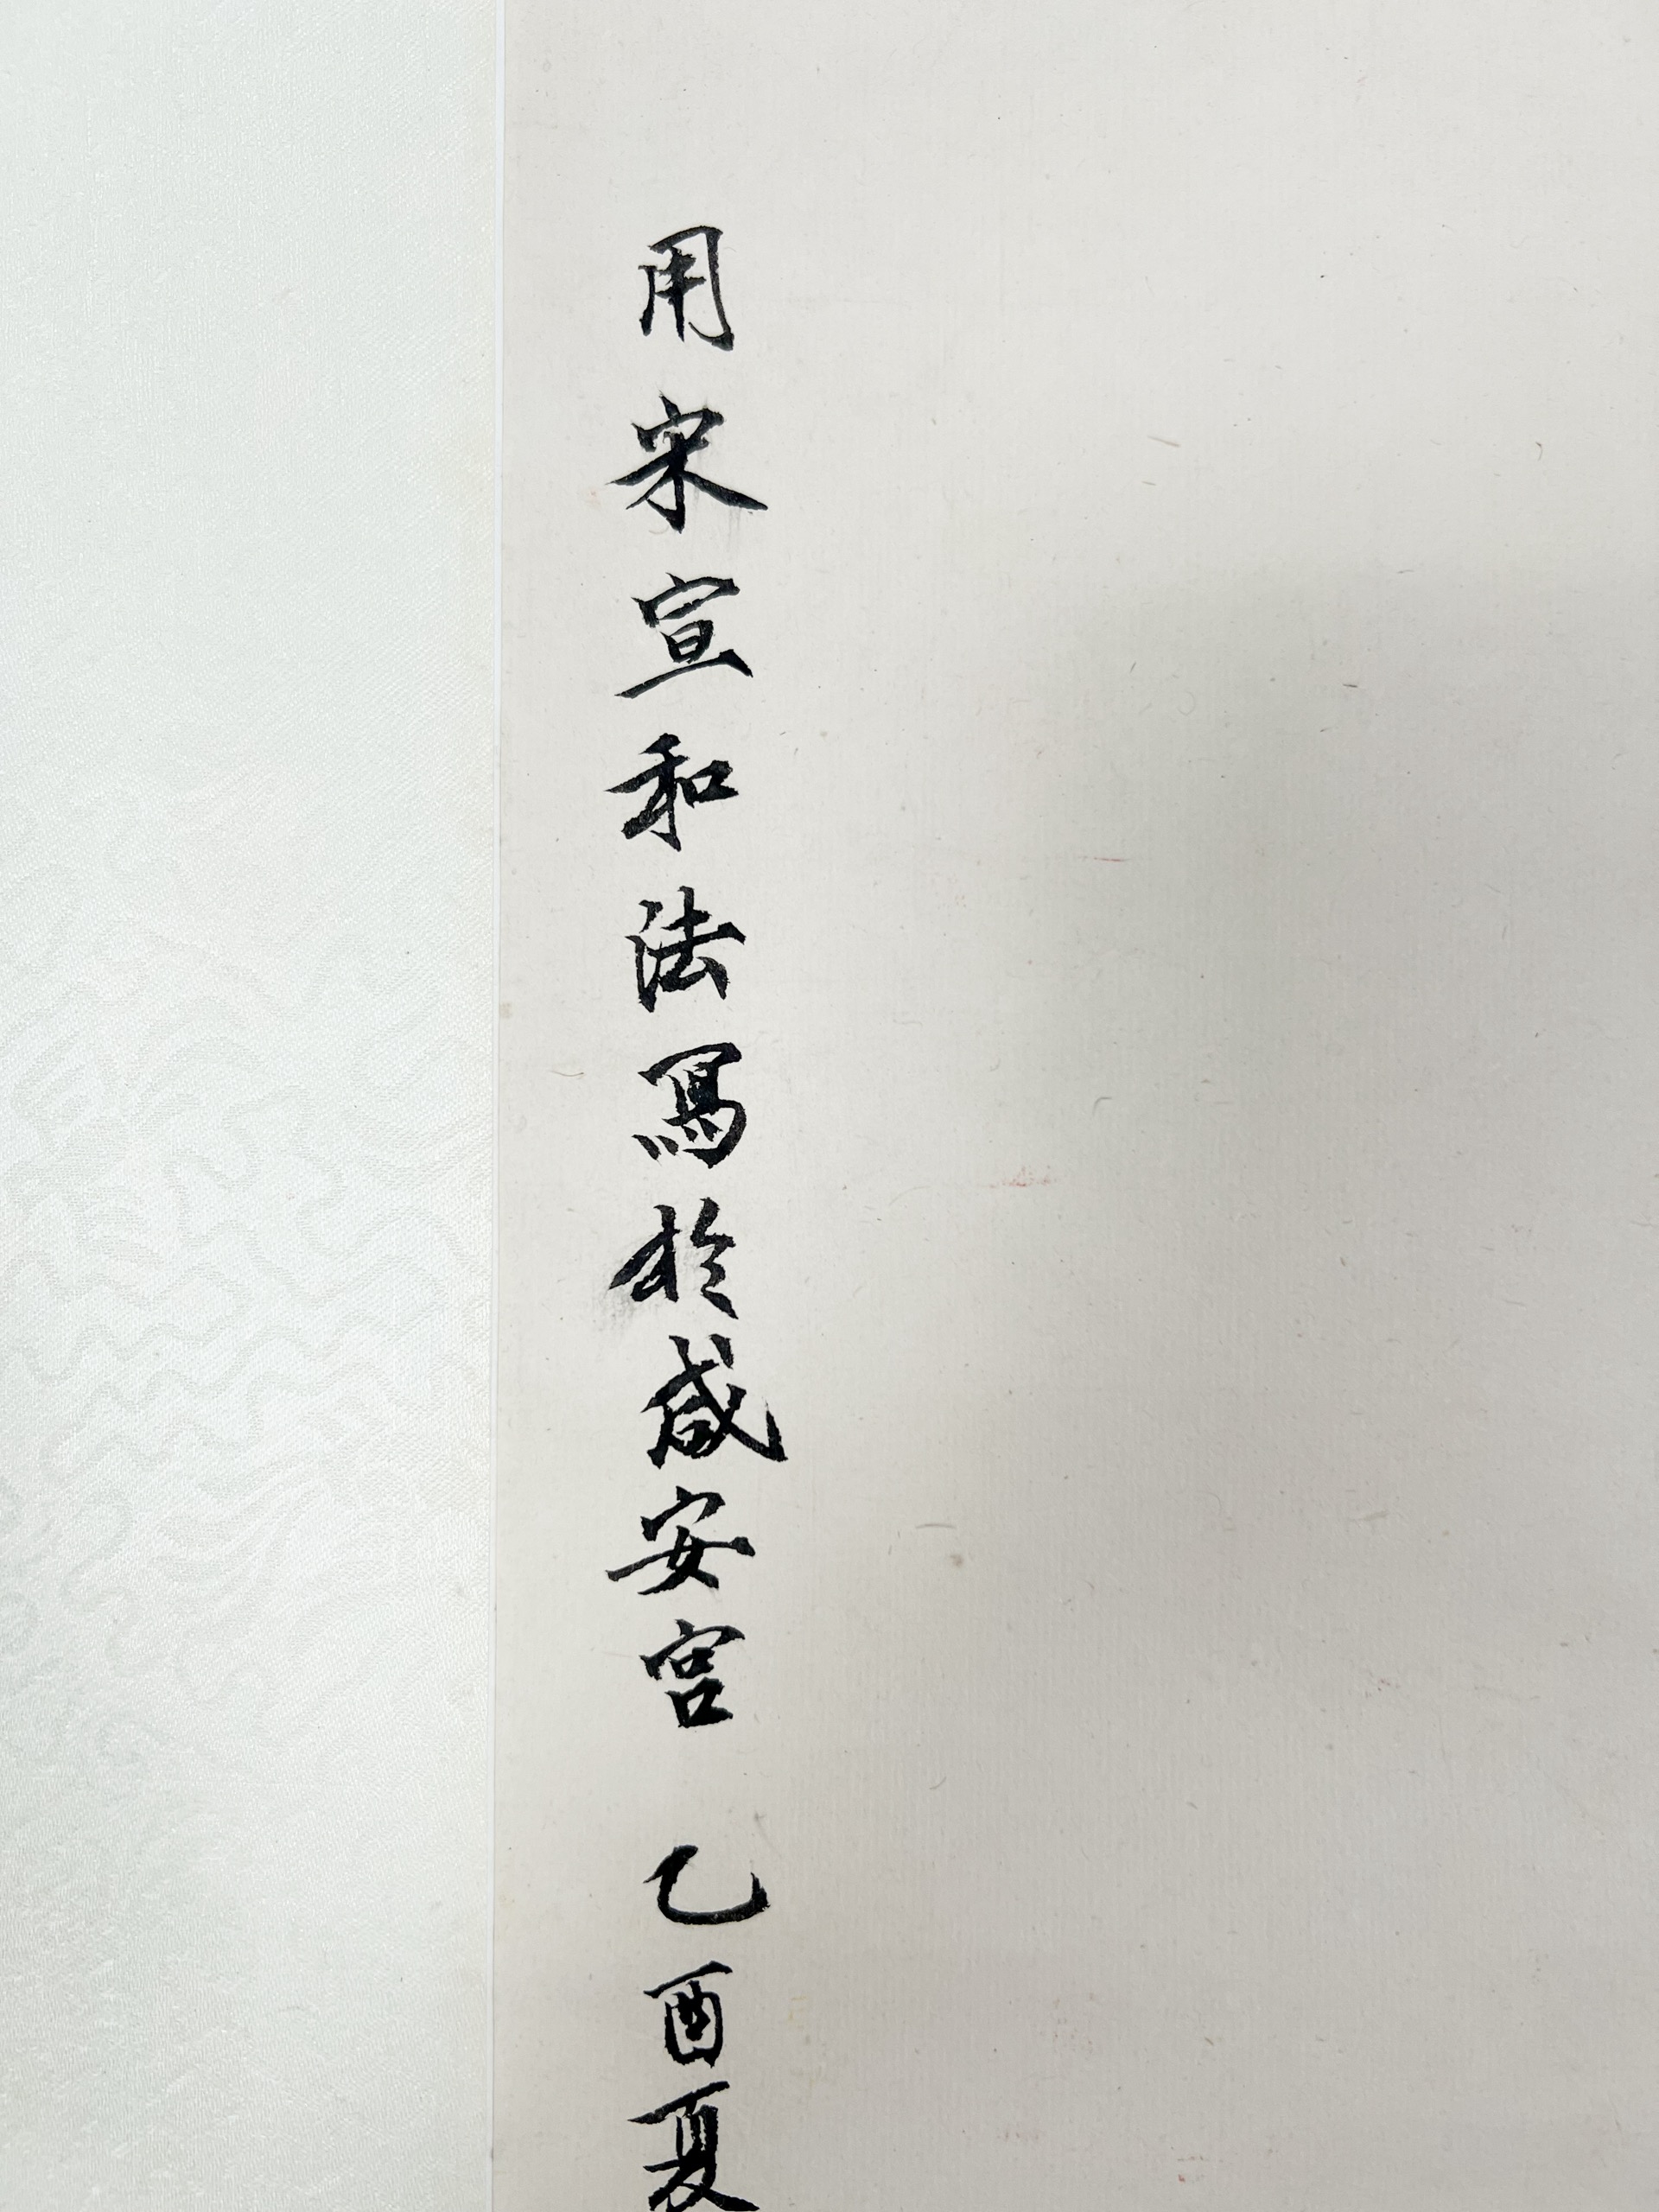 用宋宣和法寫於咸安宮 乙酉夏